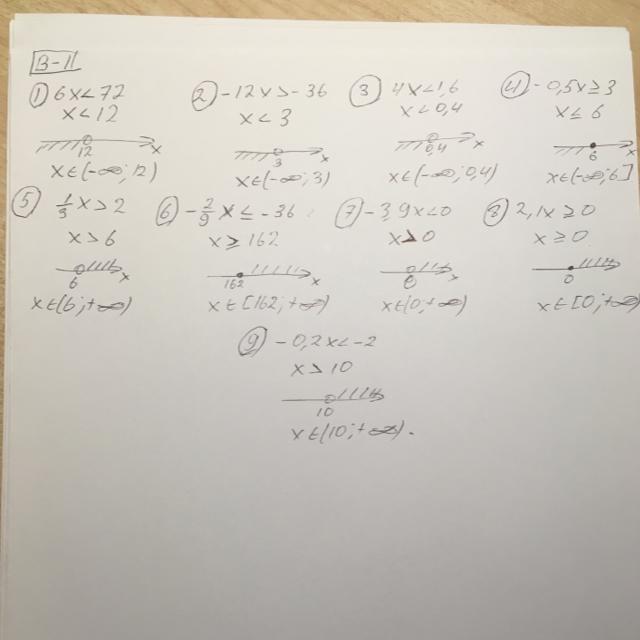 В-II
① 6x<72
x<12
12 x
x∈(-∞;12)
② -12x>-36
x<3
3 x
x∈(-∞;3)
③ 4x<1,6
x<0,4
0,4 x
x∈(-∞;0,4)
④ -0,5x≥3
x≤6
6 x
x∈(-∞;6]
⑤ 1/3 x>2
x>6
6 x
x∈(6;+∞)
⑥ -2/9 x≤-36
x≥162
162 x
x∈[162;+∞)
⑦ -3,9x<0
x>0
0 x
x∈(0;+∞)
⑧ 2,1x≥0
x≥0
0
x∈[0;+∞)
⑨ -0,2x<-2
x>10
10
x∈(10;+∞).